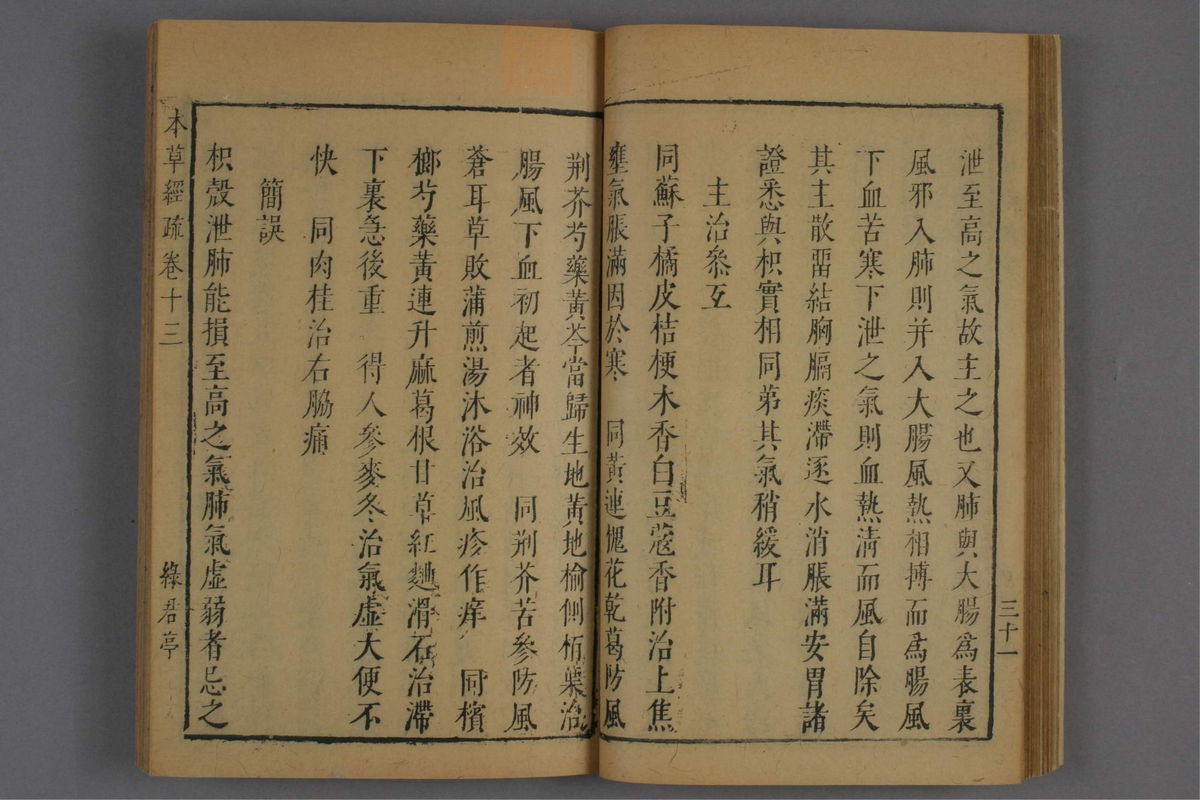 泄至高之氣故主之也又肺與大腸爲表裏
風邪入肺則并入大腸風熱相搏而爲腸風
下血苦寒下泄之氣則血熱清而風自除矣
其主散畱結胸膈痰滯逐水消脹滿安胃諸
證悉與枳實相同弟其氣稍緩耳
主治叅互
同蘇子橘皮桔梗木香白豆蔻香附治上焦
壅氣脹滿因於寒 同黃連槐花乾葛防風
荆芥芍藥黃芩當歸生地黃地榆側栢葉治
腸風下血初起者神效 同荆芥苦參防風
蒼耳草敗蒲煎湯沐浴治風疹作痒 同檳
榔芍藥黃連升麻葛根甘草紅麯滑石治滯
下裏急後重 得人參麥冬治氣虛大便不
快 同肉桂治右脇痛
簡誤
枳殼泄肺能損至高之氣肺氣虛弱者忌之
三十一
本草經疏卷十三
綠君亭